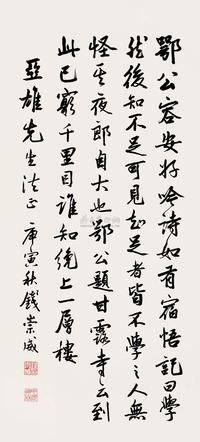 鄂公容安好吟诗如有宿悟記曰學
然後知不足可見知足者皆不學之人無
怪其夜郎自大也鄂公題甘露寺云到
此已窮千里目誰知纔上一層樓
亞雄先生法正 庚寅秋錢崇威